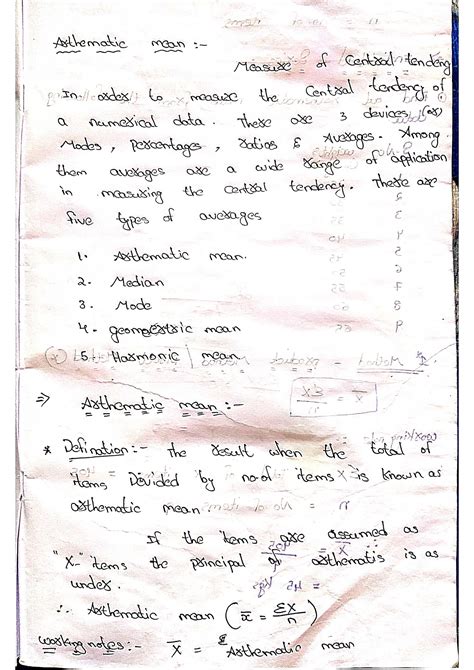 Arthematic mean :-
Measure of Central tendency
In order to measure the Central tendency of
a numerical data. There are 3 devices (or)
Modes, Percentages, ratios & Averages. Among
them averages are a wide range of application
in measuring the central tendency. There are
five types of averages
1. Arthematic mean.
2. Median
3. Mode
4. geometric mean
5. Harmonic mean
⇒ Arthematic mean :-
* Defination :- the result when the total of
items, Divided by no.of items is known as
arthematic mean
If the items are assumed as
"X-" items the principal of arthematis is as
under.
∴ Arthematic mean (x̄ = ΣX/n)
Working notes :- X̄ = Arthematic mean